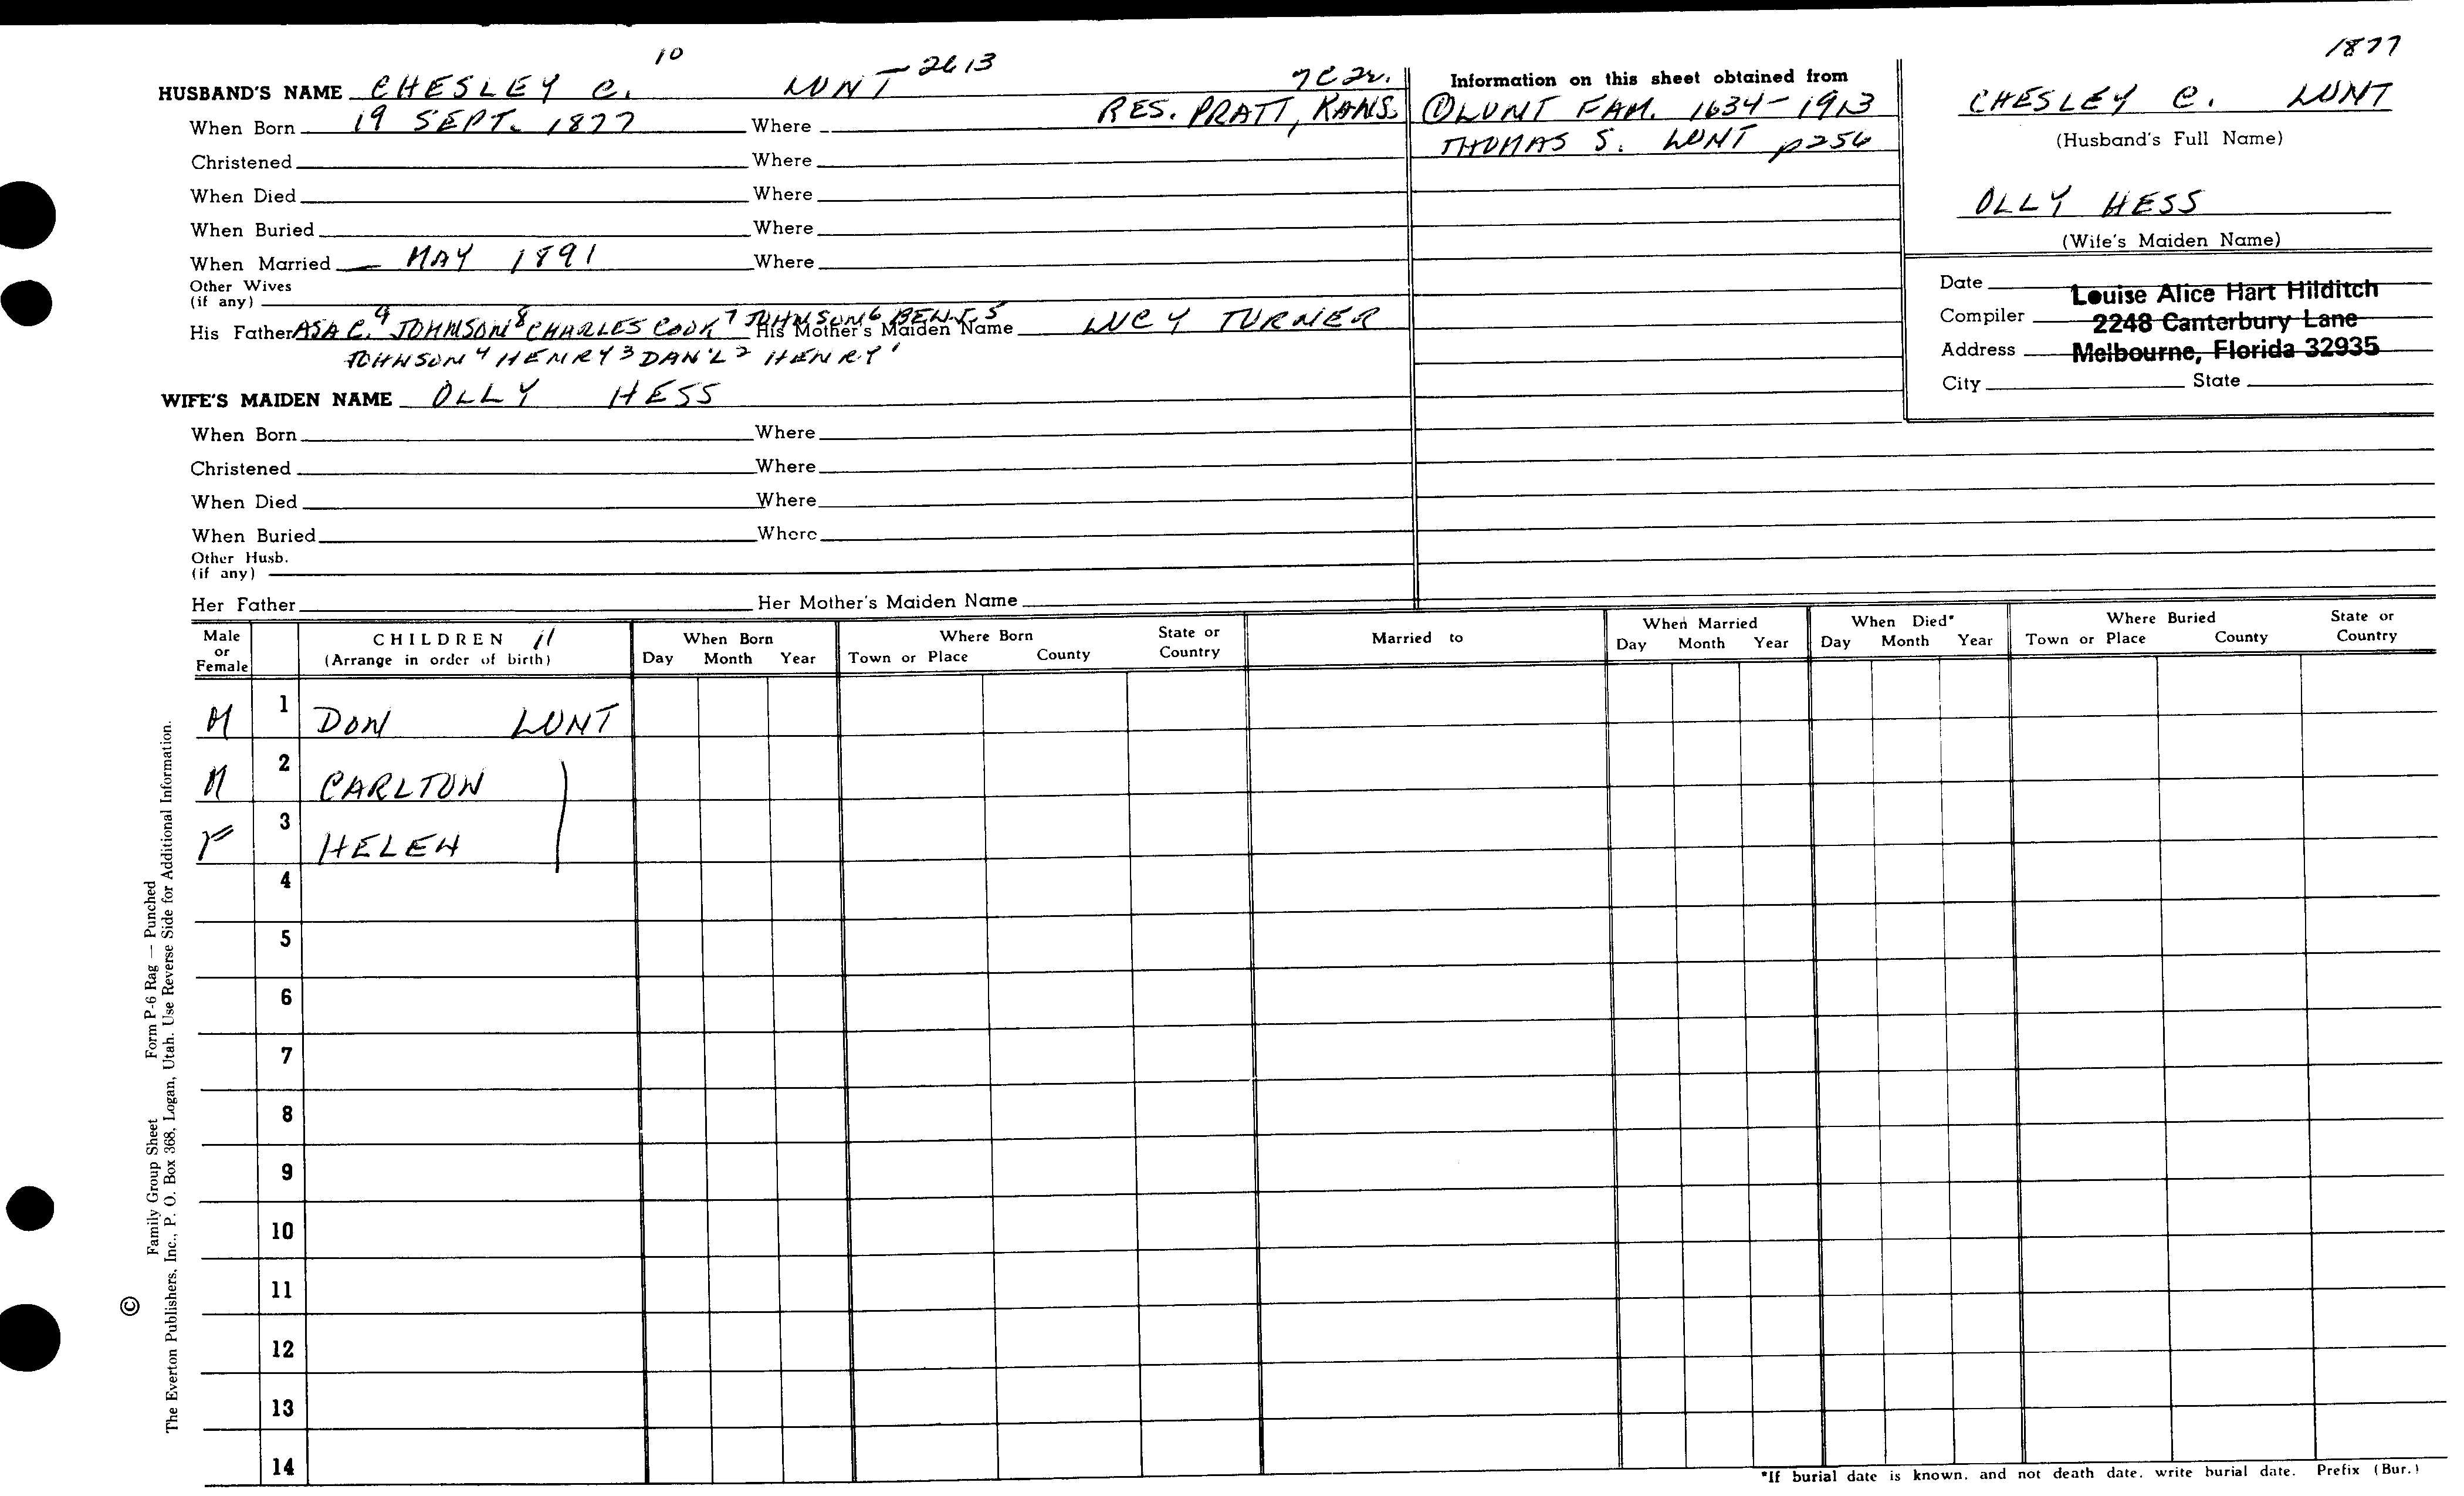 1877
10
HUSBAND'S NAME CHESLEY C. LUNT - 2613
When Born 19 SEPT. 1877 Where RES. PRATT, KANS.
Christened Where
When Died Where
When Buried Where
When Married — MAY 1891 Where
Other Wives
(if any)
His Father ASA C.9 JOHNSON8 CHARLES COOK7 JOHNSON6 BENJ.5 His Mother's Maiden Name LUCY TURNER
JOHNSON4 HENRY3 DAN'L2 HENRY1
WIFE'S MAIDEN NAME OLLY HESS
When Born Where
Christened Where
When Died Where
When Buried Where
Other Husb.
(if any)
Her Father Her Mother's Maiden Name
Information on this sheet obtained from
① LUNT FAM. 1634-1913
THOMAS S. LUNT p256
CHESLEY C. LUNT
(Husband's Full Name)
OLLY HESS
(Wife's Maiden Name)
Date
Louise Alice Hart Hilditch
Compiler 2248 Canterbury Lane
Address Melbourne, Florida 32935
City State
Male or Female CHILDREN 11 (Arrange in order of birth) When Born Day Month Year Where Born Town or Place County State or Country Married to When Married Day Month Year When Died* Day Month Year Where Buried Town or Place County State or Country
M 1 DON LUNT
M 2 CARLTON
F 3 HELEN
4
5
6
7
8
9
10
11
12
13
14
*If burial date is known, and not death date, write burial date. Prefix (Bur.)
© Family Group Sheet Form P-6 Rag — Punched
The Everton Publishers, Inc., P. O. Box 368, Logan, Utah. Use Reverse Side for Additional Information.